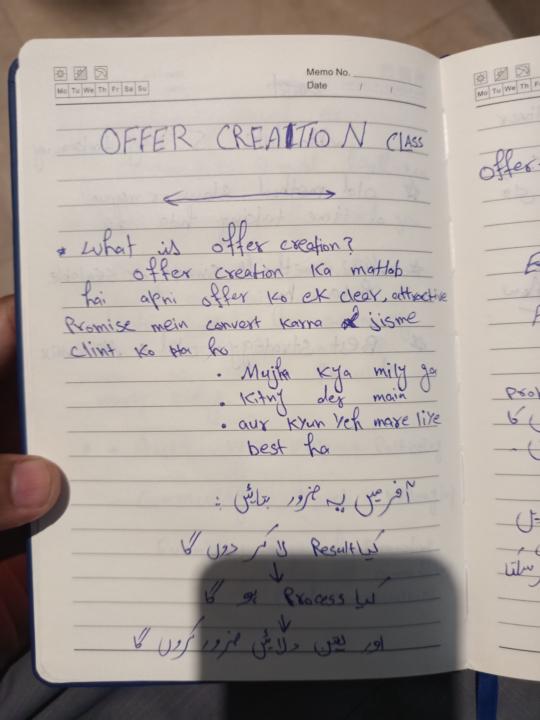 Memo No.
Mo Tu We Th Fr Sa Su
Date / /
OFFER CREATION CLASS
* What is offer creation?
offer creation Ka matlab
hai apni offer Ko ek clear, attractive
Promise mein convert Karna jisme
Clint Ko ho
• Mujha Kya mily ga
• Kitny der main
• aur Kyun Yeh mare liye
best ha
آفر میں یہ ضرور بتائیں :
کیا Result لا کر دوں گا
↓
کیا Process ہو گا
↓
اور یقین دلائیں ضرور کروں گا
Mo Tu We Th Fr
offer